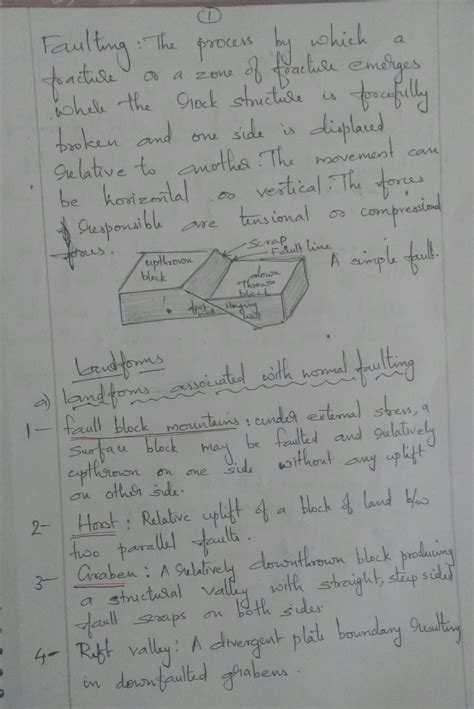 1
Faulting : The process by which a
fracture or a zone of fracture emerges
where the rock structure is forcefully
broken and one side is displaced
relative to another. The movement can
be horizontal or vertical. The forces
responsible are tensional or compressional
forces.
scrap
fault line
upthrown
block
down
thrown
block
A simple fault.
foot
Hanging
wall
Landforms
a) landforms associated with normal faulting
1- fault block mountains : under external stress, a
surface block may be faulted and relatively
upthrown on one side without any uplift
on other side.
2- Horst : Relative uplift of a block of land b/w
two parallel faults.
3- Graben : A relatively downthrown block producing
a structural valley with straight, steep sided
fault scraps on both sides.
4- Rift valley : A divergent plate boundary resulting
in downfaulted grabens.